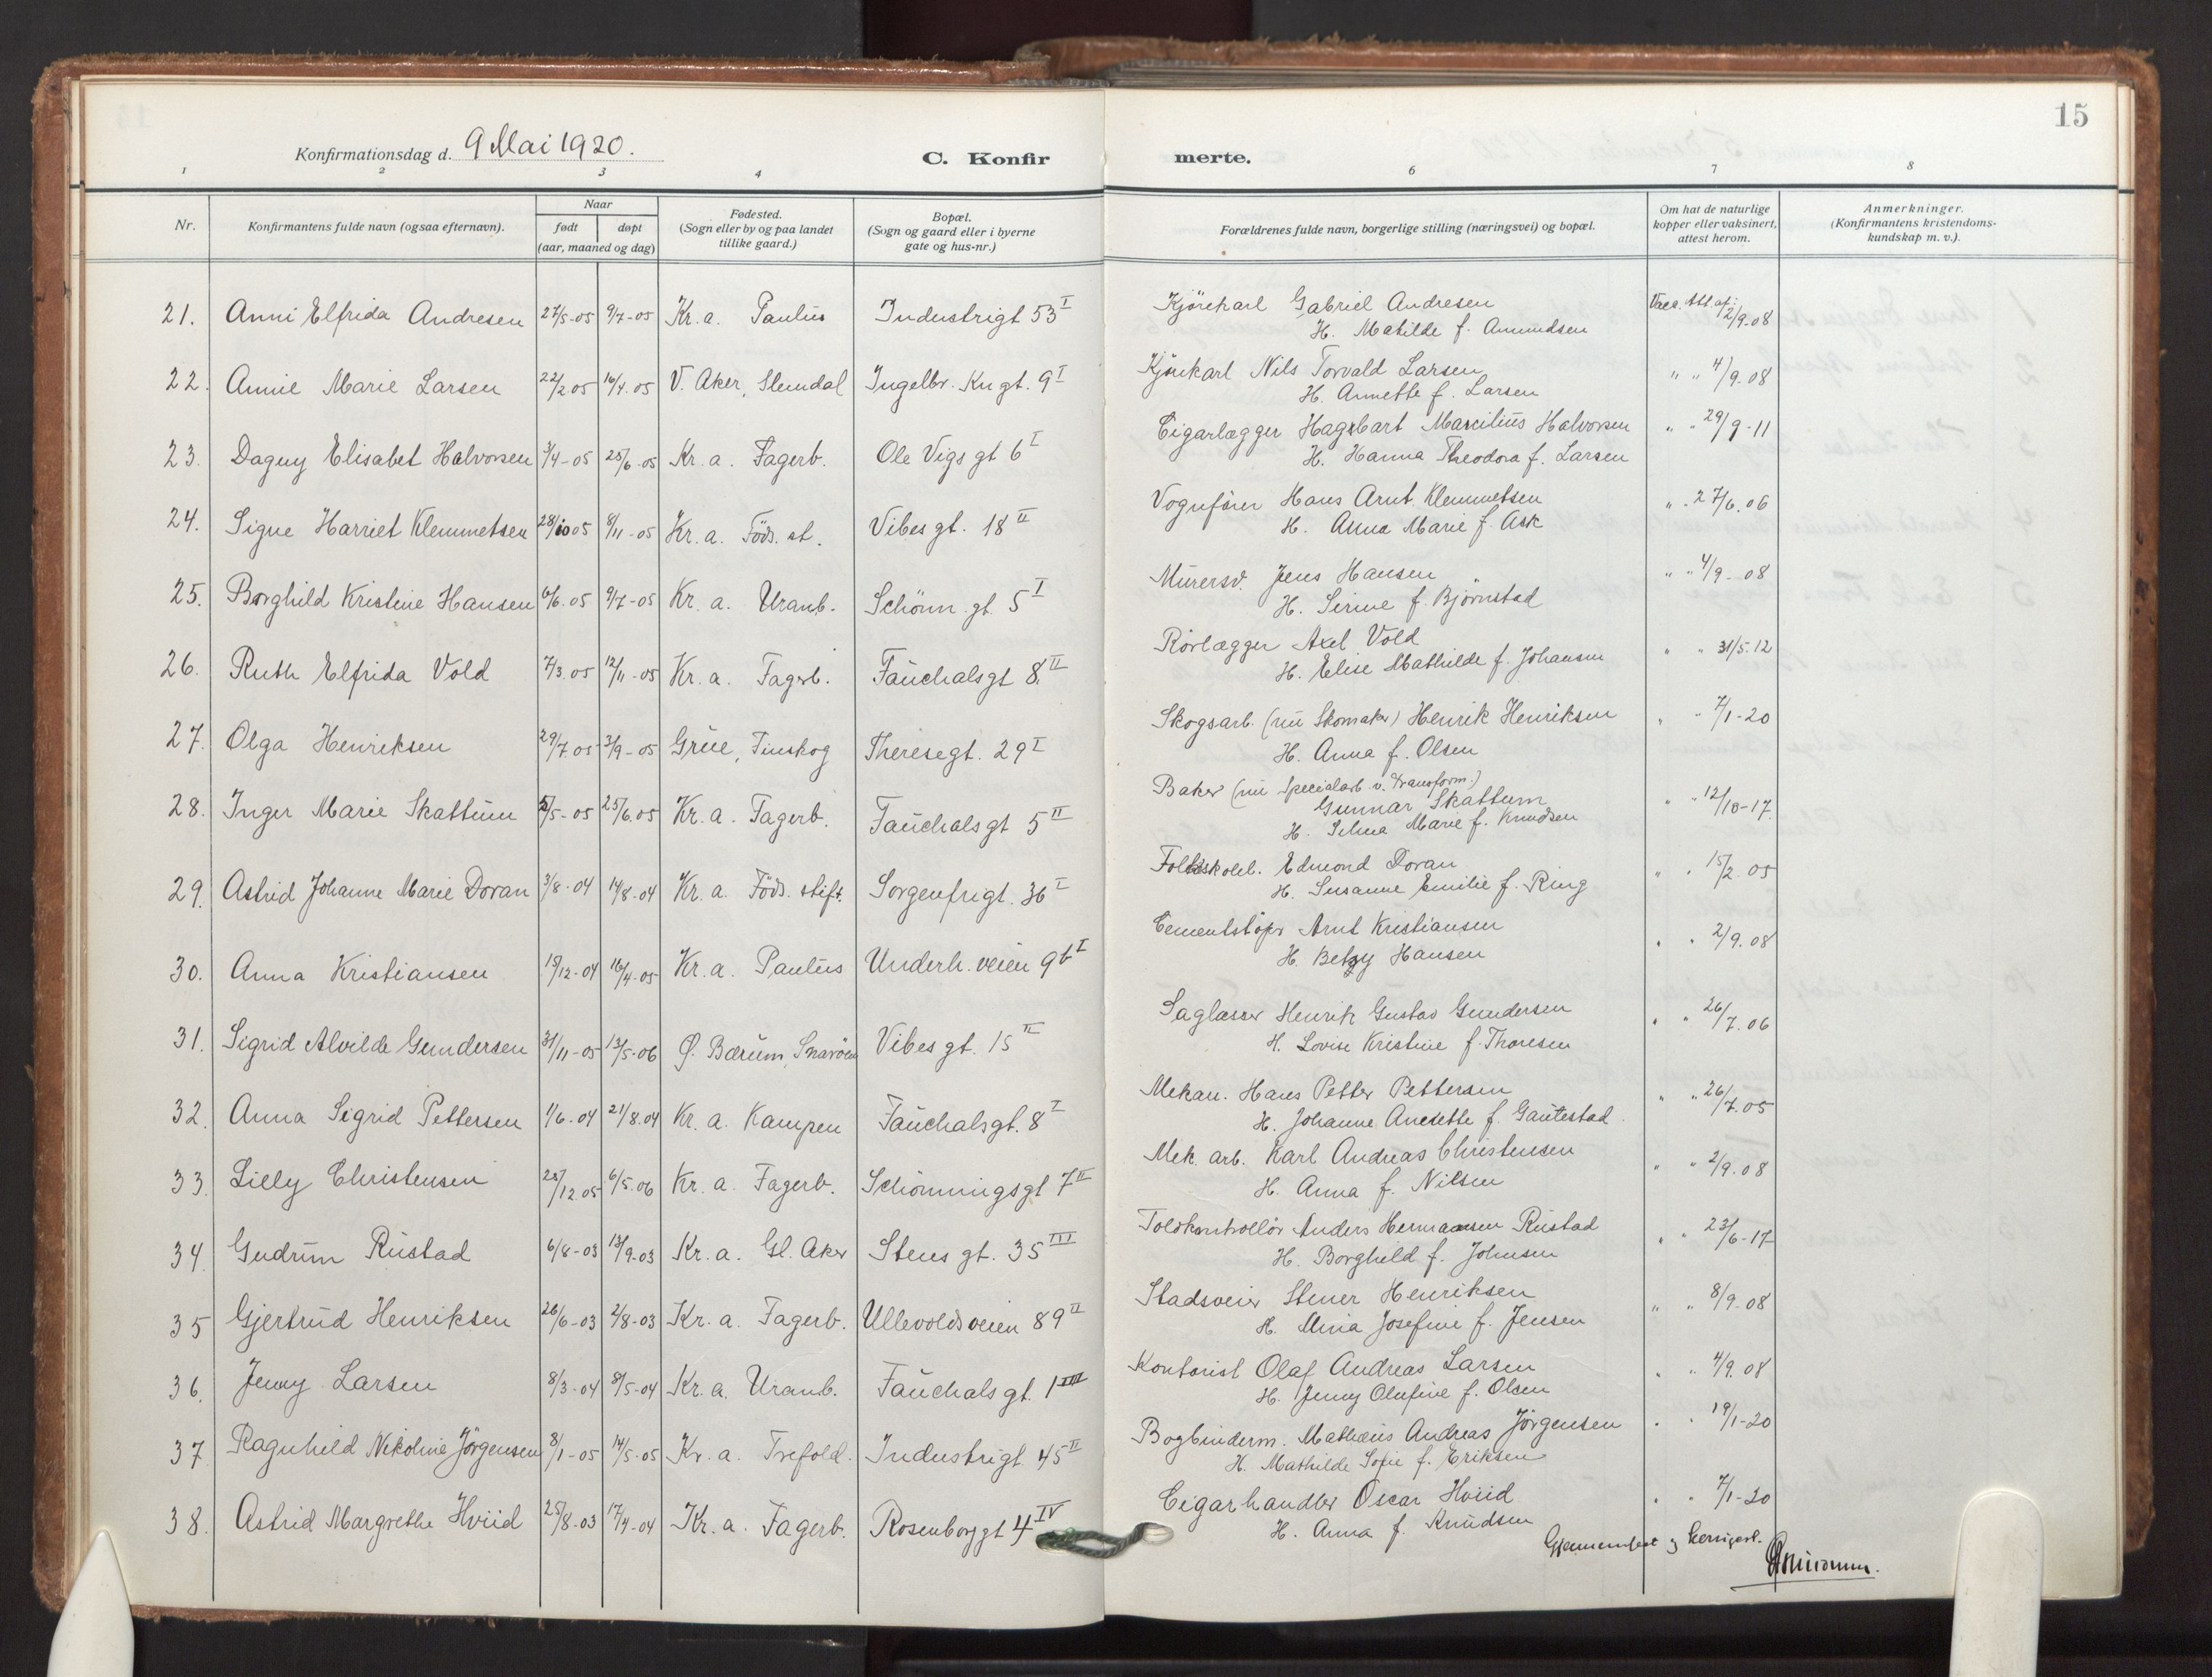 15
Konfirmationsdag d. 9 Mai 1920.
C. Konfirmerte.
1 2 3 4 6 7 8
Nr.
Konfirmantens fulde navn (ogsaa efternavn).
Naar
født døpt
(aar, maaned og dag)
Fødested.
(Sogn eller by og paa landet
tillike gaard.)
Bopæl.
(Sogn og gaard eller i byerne
gate og hus-nr.)
Forældrenes fulde navn, borgerlige stilling (næringsvei) og bopæl.
Om hat de naturlige
kopper eller vaksinert,
attest herom.
Anmerkninger.
(Konfirmantens kristendoms-
kundskap m. v.).
21. Anni Elfrida Andresen 27/5-05 9/7-05 Kr.a. Paulus Industrigt 53 I Kjörekarl Gabriel Andresen Vacc. Att. af 2/9-08
H. Matilde f. Amundsen
22. Annie Marie Larsen 22/2 05 16/4. 05 V. Aker, Slemdal Ingelbr. Kn gt. 9 I Kjörekarl Nils Torvald Larsen " " 4/9.08
H. Annette f. Larsen
23. Dagny Elisabet Halvorsen 3/4-05 25/6-05 Kr.a. Fagerb. Ole Vigs gt 6 I Cigarlægger Hagbart Marcilius Halvorsen " " 29/9-11
H. Hanna Theodora f. Larsen
24. Signe Harriet Klemmetsen 28/10 05 8/11-05 Kr.a. Föds. st. Vibes gt. 18 II Vognfører Hans Arnt Klemmetsen " " 27/6.06
H. Anna Marie f. Ask
25. Borghild Kristine Hansen 6/6.05 9/7-05 Kr.a. Uranb. Schönn. gt. 5 I Murersv. Jens Hansen " " 4/9-08
H. Serine f. Bjørnstad
26. Ruth Elfrida Vold 7/3.05 12/11-05 Kr.a. Fagerb. Fauchalsgt 8 II Rørlægger Axel Vold " " 31/5.12
H. Elise Mathilde f. Johansen
27. Olga Henriksen 29/7.05 3/9-05 Grue, Finskog Theresegt. 29 I Skogsarb. (nu Skomaker) Henrik Henriksen " " 7/1-20
H. Anna f. Olsen
28. Inger Marie Skattum 5/5-05 25/6.05 Kr.a. Fagerb. Fauchalsgt 5 II Baker (nu Specialarb. v. Transform.) " " 12/10-17
Gunnar Skattum
H. Selma Marie f. Knudsen
29. Astrid Johanne Marie Doran 3/8-04 14/8-04 Kr.a. Föds. stift. Sorgenfrigt. 36 I Folkeskolel. Edmond Doran " " 15/2.05
H. Susanne Emilie f. Ring
30. Anna Kristiansen 15/12-04 16/4-05 Kr.a. Paulus Underh. veien 9b I Cementstöper Arnt Kristiansen " " 2/9.08
H. Betzy Hansen
31. Sigrid Alvilde Gundersen 31/11-05 13/5-06 Ø. Bærum, Snarøen Vibes gt. 15 II Henrik Gustav Gundersen " " 26/7.06
H. Lovise Kristine f. Thoresen
32. Anna Sigrid Pettersen 1/6-04 21/8.04 Kr.a. Kampen Fauchalsgt. 8 I Mekan. Hans Petter Pettersen " " 26/7.05
H. Johanne Anesette f. Gautestad
33. Lilly Christensen 25/12 05 6/5.06 Kr.a. Fagerb. Schönningsgt 7 II Mek. arb. Karl Andreas Christensen " " 2/9.08
H. Anna f. Nilsen
34. Gudrun Rustad 6/8-03 13/9.03 Kr.a. Gl. Aker Stens gt. 35 III Toldkontrollör Anders Hermansen Rustad " " 23/6-17
H. Borghild f. Johnsen
35 Gjertrud Henriksen 26/6-03 2/8-03 Kr.a. Fagerb. Ullevoldsveien 89 II Stadsveier Stener Henriksen " " 8/9.08
H. Mina Josefine f. Jensen
36. Jenny Larsen 8/3-04 8/5-04 Kr.a. Uranb. Fauchalsgt. 1 IIII Kontorist Olaf Andreas Larsen " " 4/9.08
H. Jenny Olufine f. Olsen
37 Ragnhild Nikoline Jörgensen 8/1-05 14/5-05 Kr.a. Trefold. Industrigt 45 II Bogbinderm. Mathæus Andreas Jörgensen " " 19/1-20
H. Mathilde Sofie f. Eriksen
38. Astrid Margrethe Hviid 25/8-03 17/4-04 Kr.a. Fagerb. Rosenborggt 4 IV Cigarhandler Oscar Hviid " " 7/1-20
H. Anna f. Knudsen
Gjennemset og korrigert.